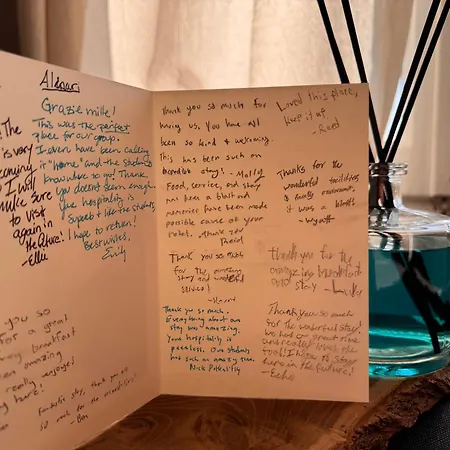 Aldgari
Grazie mille!
This was the perfect
place for our group.
I even have been calling
it "home" and the students
knew where to go! Thank
you doesn't seem enough.
The hospitality is
superb & like the students,
I hope to return!
Best wishes,
Emily
The
is very
coming
I will
make sure
to visit
again in
the future!
-Ellie
you so
for a great
very breakfast
en amazing
really enjoyed
here!
fantastic stay, thank you all
so much for the
- Ben
Thank you so much for
having us. You have all
been so kind & welcoming.
This has been such an
incredible stay! - Molly
Food, service, and stay
has been a blast and
memories have been made
possible cause of your
hotel. Thank you
Thank you so much
for the amazing
stay and wonderful
service!
Thank you so much.
Everything about our
stay was amazing.
Your hospitality is
peerless. Our students
had such an amazing time.
Nick
Loved this place,
keep it up.
-Reed
Thanks for the
wonderful facilities
& family environment,
it was a blast!
- Wyatt
Thank you for the
amazing breakfast
and stay - Luke
Thank you so much
for the wonderful stay!
we had a great time
and really loved the
food! I hope to stay
here in the future!
-Echo